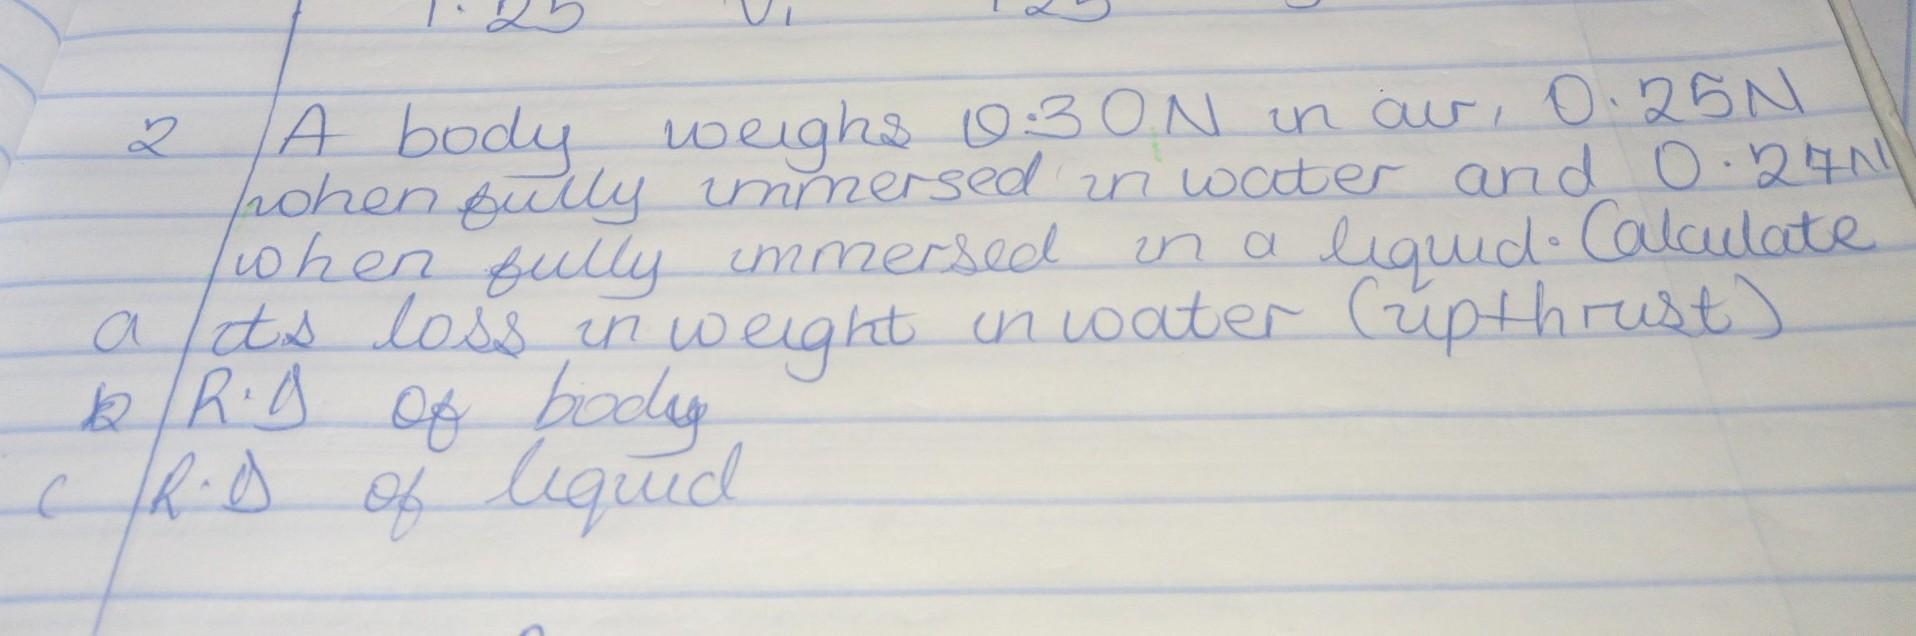 1.25 V1 1.25
2 A body weighs 0.30N in air, 0.25N
when fully immersed in water and 0.27N
when fully immersed in a liquid. Calculate
a its loss in weight in water (upthrust)
b R.D of body
c R.D of liquid